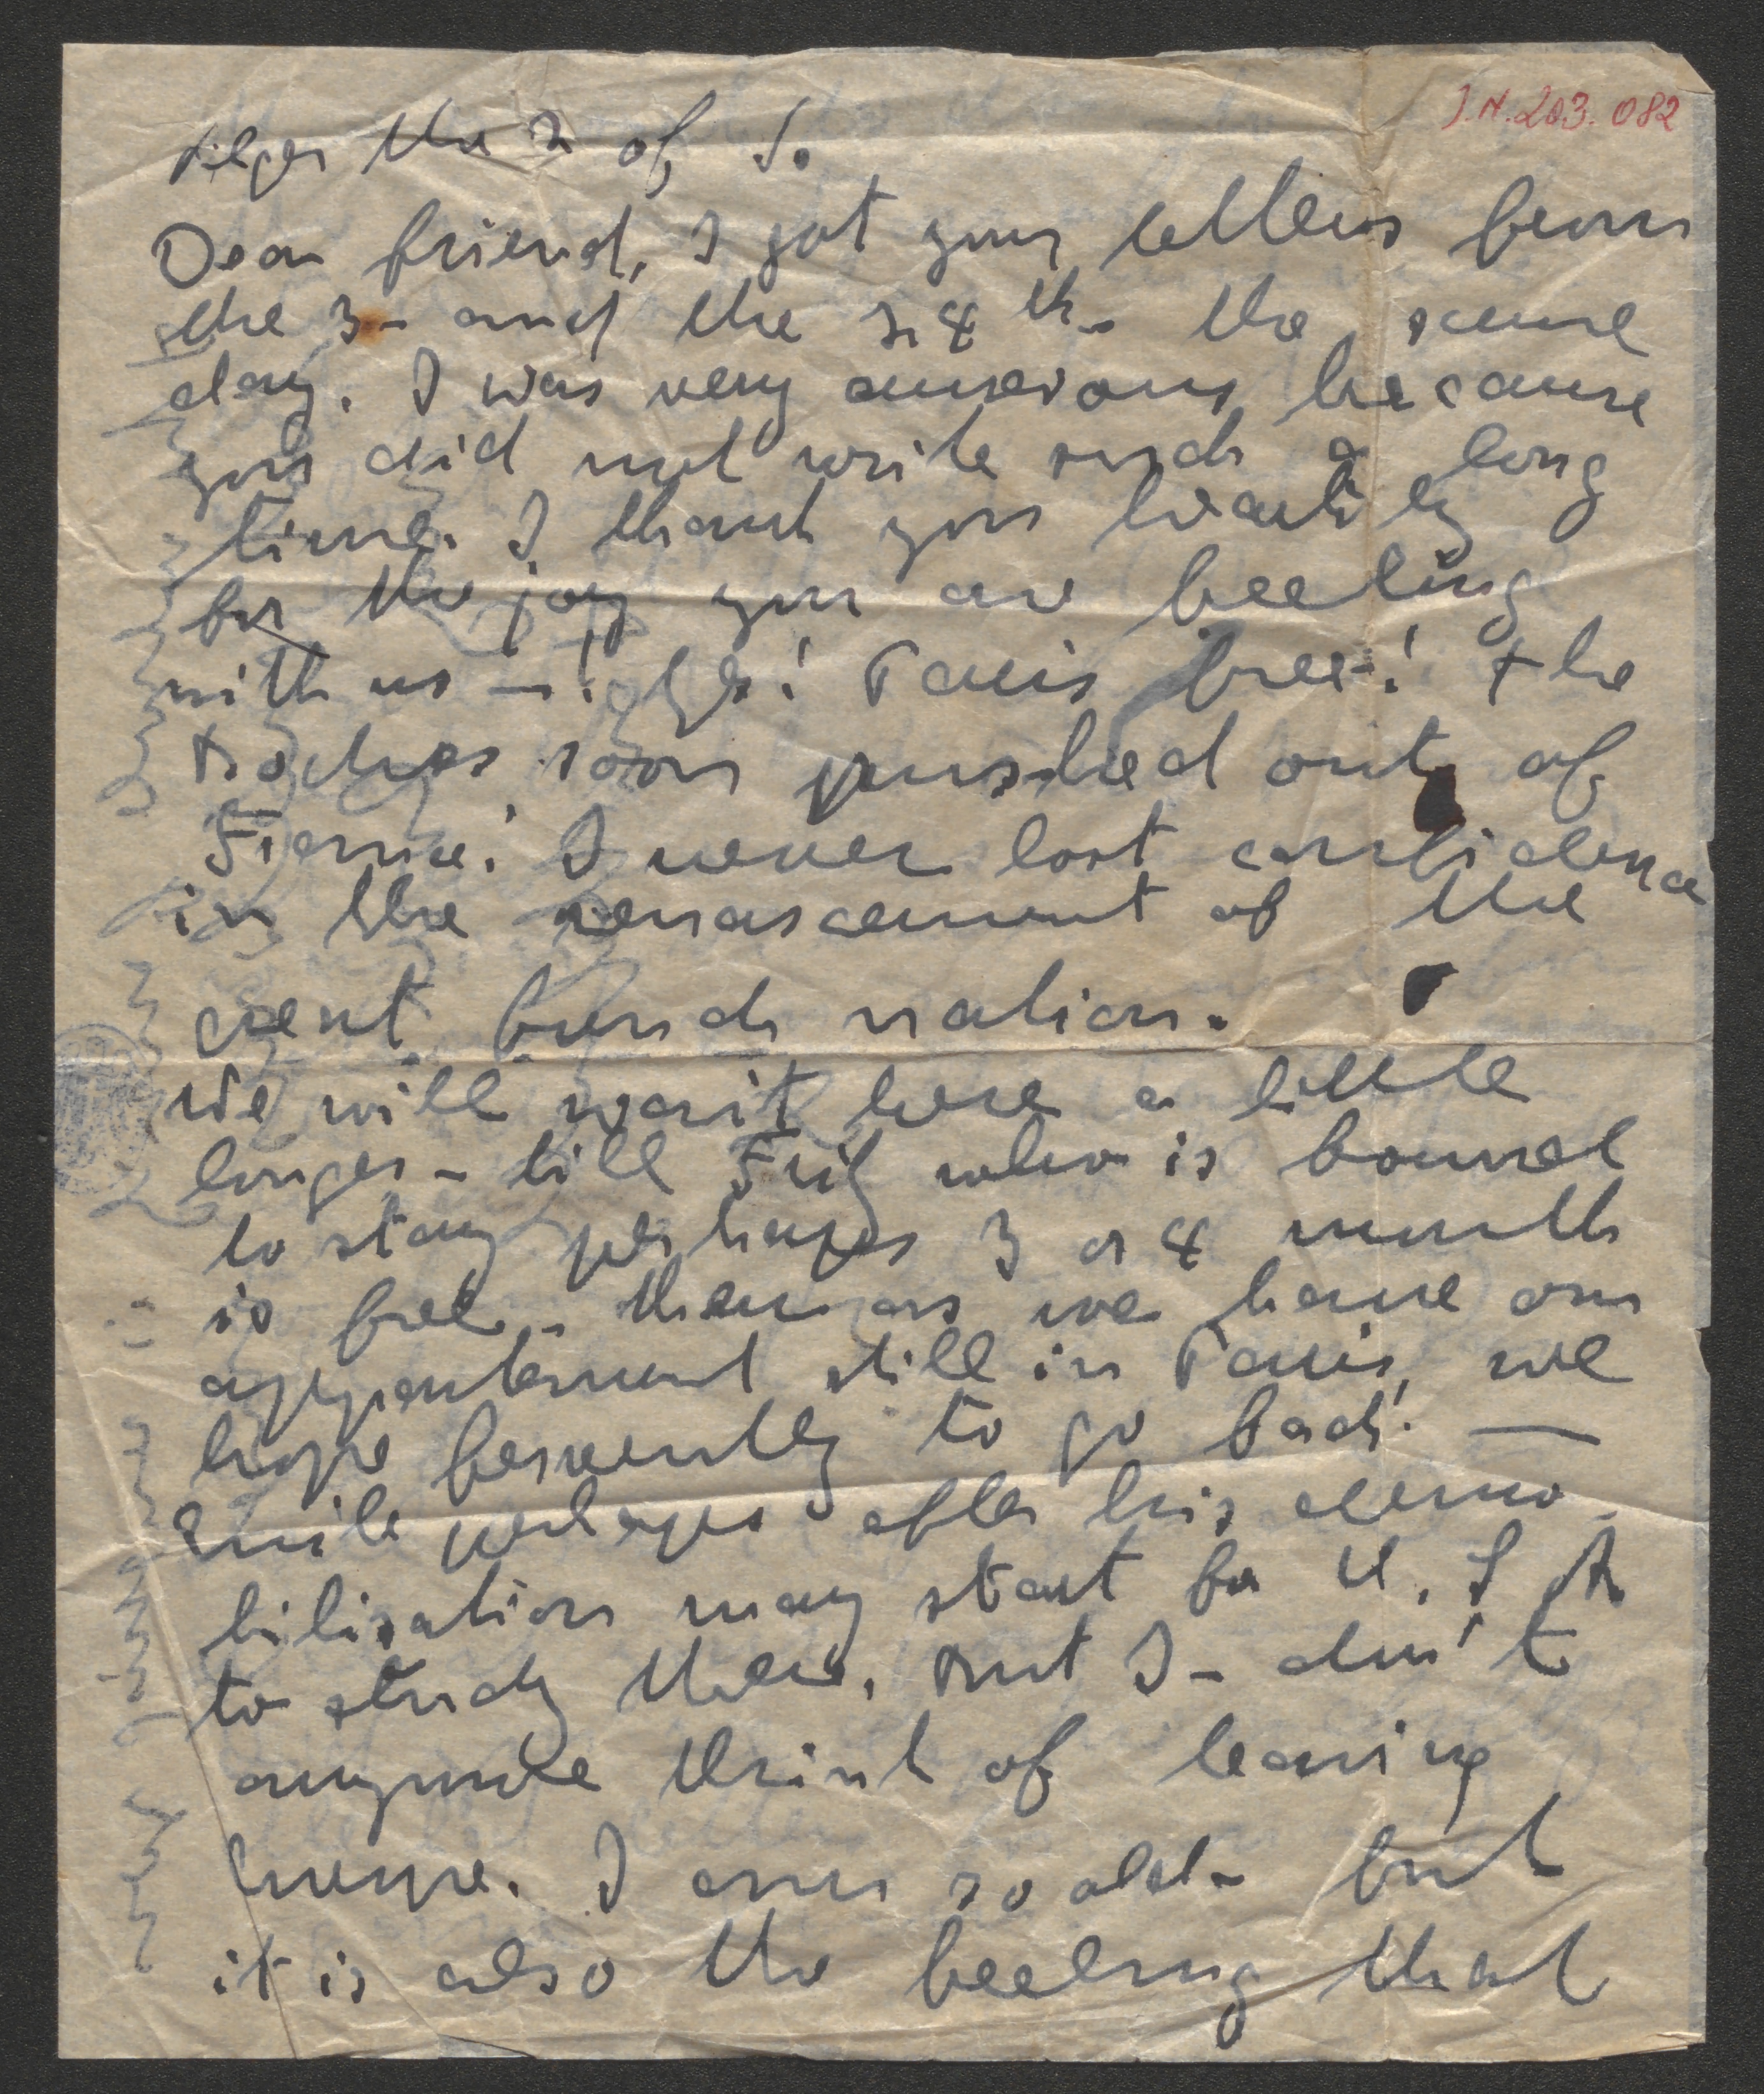 J.N. 203.082
Alger the 2 of S.
Dear friend, I got your letters from
the 3 – and the 24th – the same
day. I was very anxious because
you did not write such a long
time. I thank you heartily
for the joy you are feeling
with us – Paris free! the
Boches soon pushed out of
France! I never lost confidence
in the renascement of the
great french nation.
We will wait here a little
longer – till Fritz who is bound
to stay perhaps 3 or 4 month
is free – then as we have our
appartement still in Paris, we
hope fervently to go back! —
Emile perhaps after his demo-
bilisation may start for U.S.A
to study there, But I – don't
anymore think of leaving
Europe. I am so old – but
it is also the feeling that